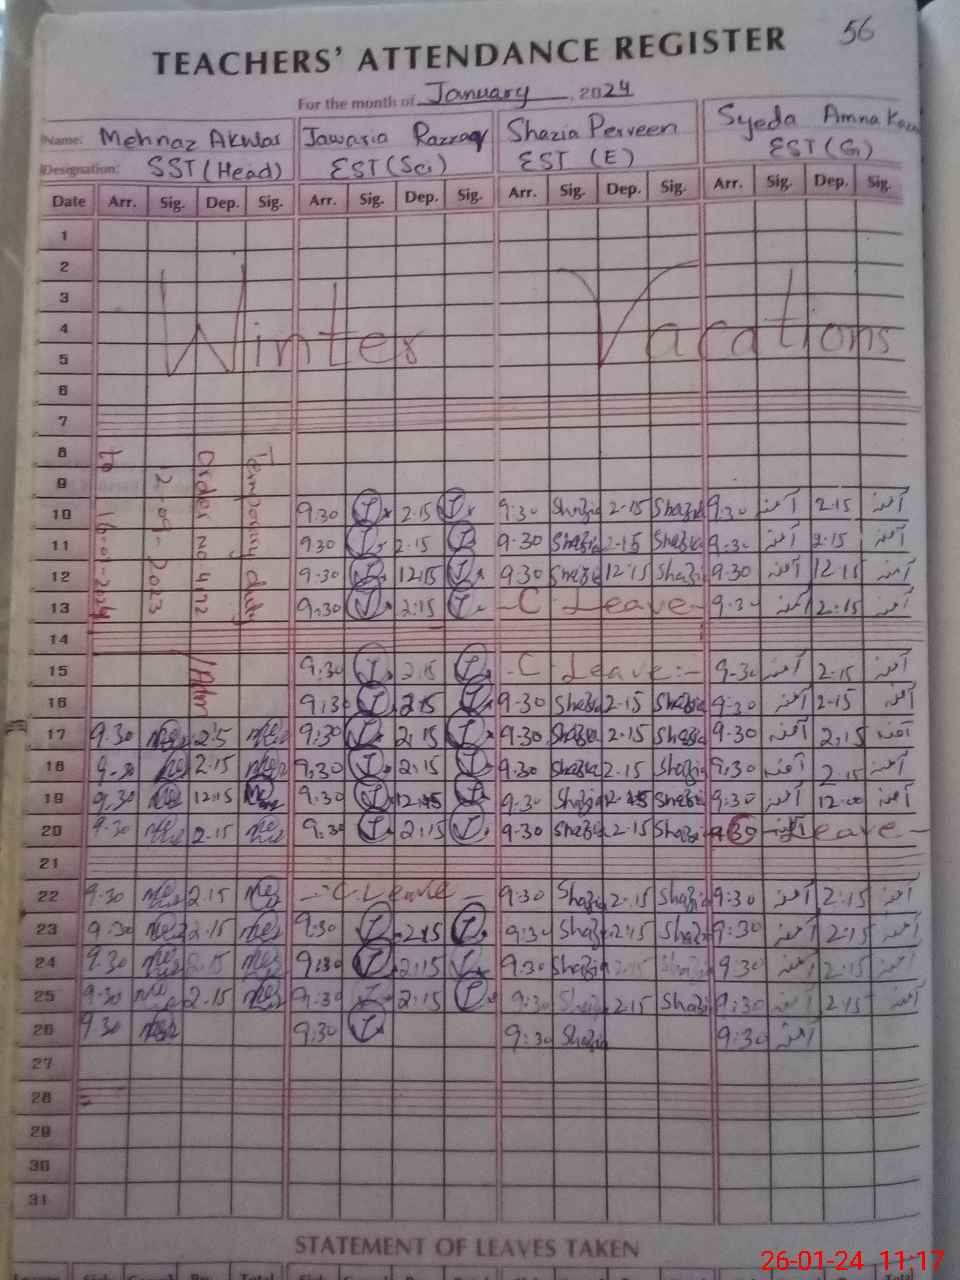 56
TEACHERS' ATTENDANCE REGISTER
For the month of January, 2024
Name: Mehnaz Akhtar Jawaria Razzaq Shazia Perveen Syeda Amna
Designation: SST (Head) EST (Sci) EST (E) EST (G)
Date Arr. Sig. Dep. Sig. Arr. Sig. Dep. Sig. Arr. Sig. Dep. Sig. Arr. Sig. Dep. Sig.
1
2
3
4
5
Winter Vacations
6
7
8
9
Temporary duty
Order No 472
2-09-2023
to 16-01-2024
10 9:30 2:15 9:30 Shazia 2-15 Shazia 9:30 آمنہ 2:15 آمنہ
11 9:30 2:15 9:30 Shazia 2-15 Shazia 9:30 آمنہ 2:15 آمنہ
12 9:30 12:15 9:30 Shazia 12:15 Shazia 9:30 آمنہ 12:15 آمنہ
13 9:30 2:15 - C Leave - 9:30 آمنہ 2:15 آمنہ
14
15 9:30 2:15 - C Leave :- 9-30 آمنہ 2-15 آمنہ
16 9:30 2:15 9-30 Shazia 2-15 Shazia 9:30 آمنہ 2-15 آمنہ
17 9:30 2:15 9:30 2:15 9:30 Shazia 2-15 Shazia 9:30 آمنہ 2:15 آمنہ
18 9:30 2:15 9:30 2:15 9:30 Shazia 2-15 Shazia 9:30 آمنہ 2:15 آمنہ
19 9:30 12:15 9:30 12:15 9:30 Shazia Shazia 9:30 آمنہ 12:00 آمنہ
20 9:30 2:15 9:30 2:15 9:30 Shazia 2-15 Shazia 9:30 Leave -
21
22 9:30 2:15 - C. Leave - 9:30 Shazia 2-15 Shazia 9:30 آمنہ 2:15 آمنہ
23 9:30 2:15 9:30 2:15 9:30 Shazia 2:15 Shazia 9:30 آمنہ 2:15 آمنہ
24 9:30 2:15 9:30 2:15 9:30 Shazia 2:15 Shazia 9:30 آمنہ 2:15 آمنہ
25 9:30 2:15 9:30 2:15 9:30 Shazia 2:15 Shazia 9:30 آمنہ 2:15 آمنہ
26 9:30 9:30 9:30 Shazia 9:30 آمنہ
27
28
29
30
31
STATEMENT OF LEAVES TAKEN
26-01-24 11:17